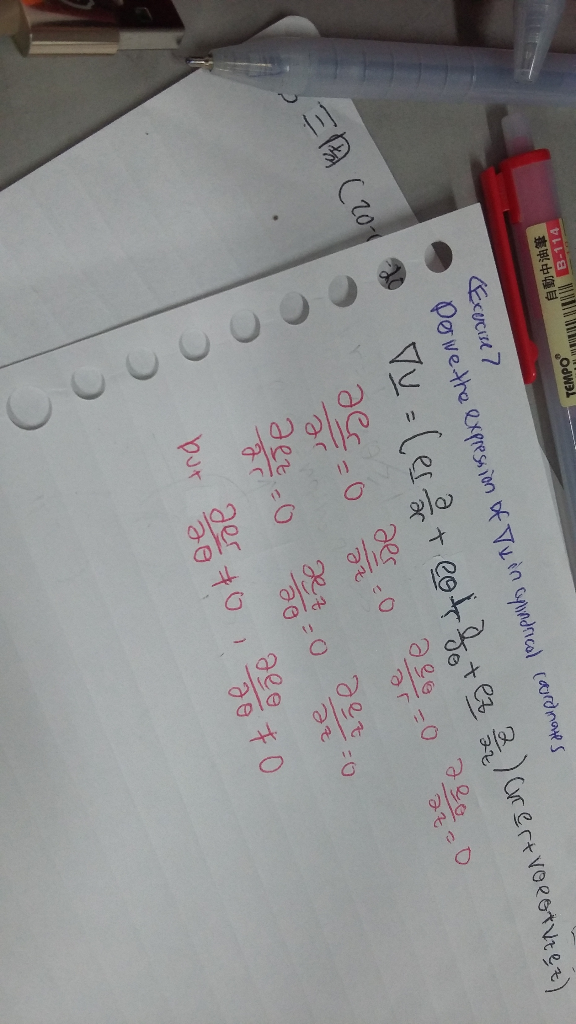 三周 (20-
20
<Exercise 7>
Derive the expression of ∇v in cylindrical coordinates
∇v = (er ∂/∂r + eθ 1/r ∂/∂θ + ez ∂/∂z) (vr er + vθ eθ + vz ez)
∂er/∂r = 0 ∂er/∂z = 0 ∂eθ/∂r = 0 ∂eθ/∂z = 0
∂ez/∂r = 0 ∂ez/∂θ = 0 ∂ez/∂z = 0
but ∂er/∂θ ≠ 0 , ∂eθ/∂θ ≠ 0
自動中油筆
B-114
TEMPO